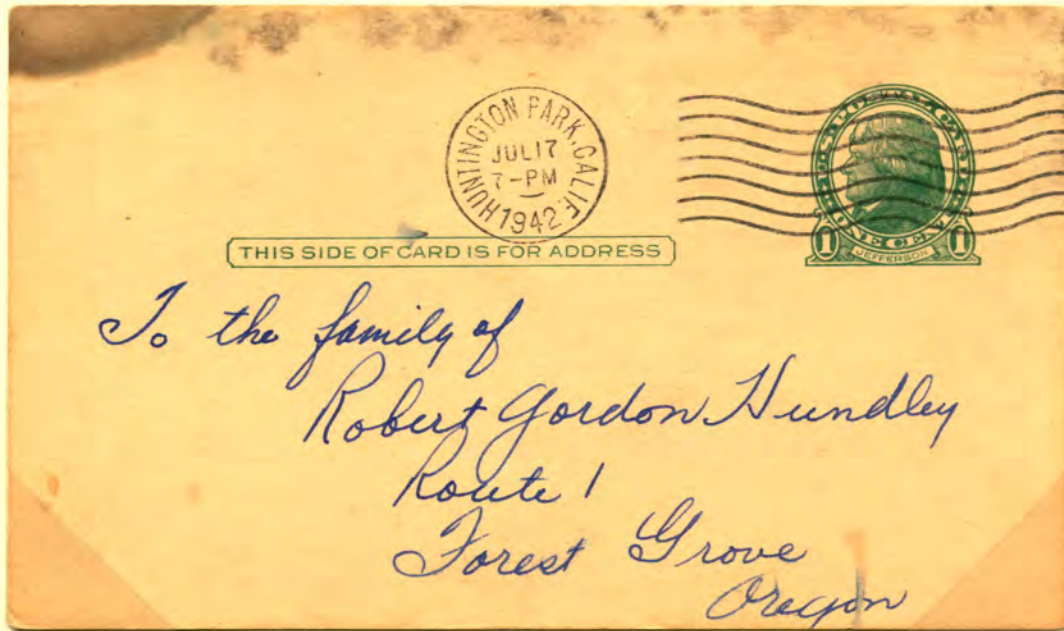 HUNTINGTON PARK, CALIF.
JUL 17
7-PM
1942
U.S. POSTAL CARD
ONE CENT
1 JEFFERSON 1
THIS SIDE OF CARD IS FOR ADDRESS
To the family of
Robert Gordon Hundley
Route 1
Forest Grove
Oregon